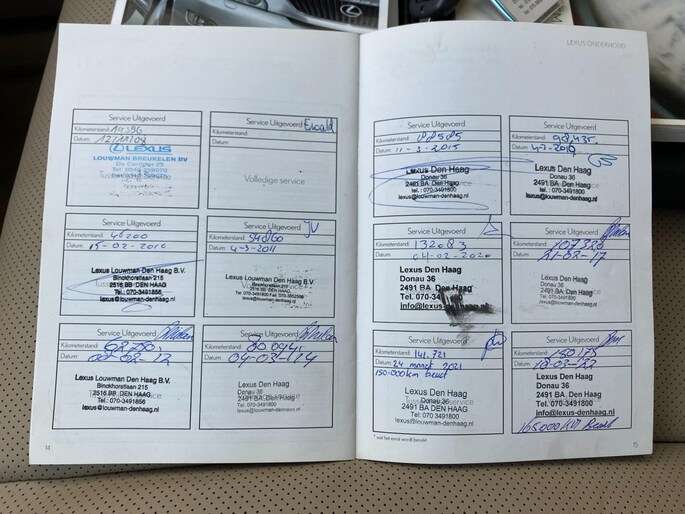 LEXUS ONDERHOUD
Service Uitgevoerd
Kilometerstand:
Datum: 12/11/09
LEXUS
LOUWMAN BREUKELEN BV
Service Uitgevoerd Ewald
Kilometerstand:
Datum:
Volledige service
Service Uitgevoerd
Kilometerstand: 40200
Datum: 15-02-2010
Lexus Louwman Den Haag B.V.
Binckhorstlaan 215
2516 BB DEN HAAG
Tel.: 070-3491856
lexus@louwman-denhaag.nl
Service Uitgevoerd
Kilometerstand: 54860
Datum: 4-3-2011
Lexus Louwman Den Haag B.V.
Binckhorstlaan 215
2516 BB DEN HAAG
Service Uitgevoerd
Kilometerstand:
Datum:
Lexus Louwman Den Haag B.V.
Binckhorstlaan 215
2516 BB DEN HAAG
Tel.: 070-3491856
lexus@louwman-denhaag.nl
Service Uitgevoerd
Kilometerstand: 80094
Datum: 04-03-'14
Lexus Den Haag
Donau 36
2491 BA DEN HAAG
Tel.: 070-3491800
lexus@louwman-denhaag.nl
14
Service Uitgevoerd
Kilometerstand: 88585
Datum: 11-3-2015
Lexus Den Haag
Donau 36
2491 BA Den Haag
Tel. 070-3491800
lexus@louwman-denhaag.nl
Service Uitgevoerd
Kilometerstand: 98435
Datum:
Lexus Den Haag
Donau 36
2491 BA Den Haag
Tel. 070-3491800
lexus@louwman-denhaag.nl
Service Uitgevoerd
Kilometerstand: 132083
Datum: 04-02-2020
Lexus Den Haag
Donau 36
2491 BA Den
Tel. 070-34
info@lexus-denhaag.nl
Service Uitgevoerd
Kilometerstand: 107328
Datum: 21-02-'17
Lexus Den Haag
Donau 36
2491 BA DEN HAAG
Tel.: 070-3491800
lexus@louwman-denhaag.nl
Service Uitgevoerd
Kilometerstand: 141.721
Datum: 24 maart 2021
150.000km beurt
Lexus Den Haag
Donau 36
2491 BA DEN HAAG
Tel.: 070-3491800
lexus@louwman-denhaag.nl
Service Uitgevoerd
Kilometerstand: 150175
Datum:
Lexus Den Haag
Donau 36
2491 BA Den Haag
Tel. 070-3491800
info@lexus-denhaag.nl
165000 KM Beurt
15